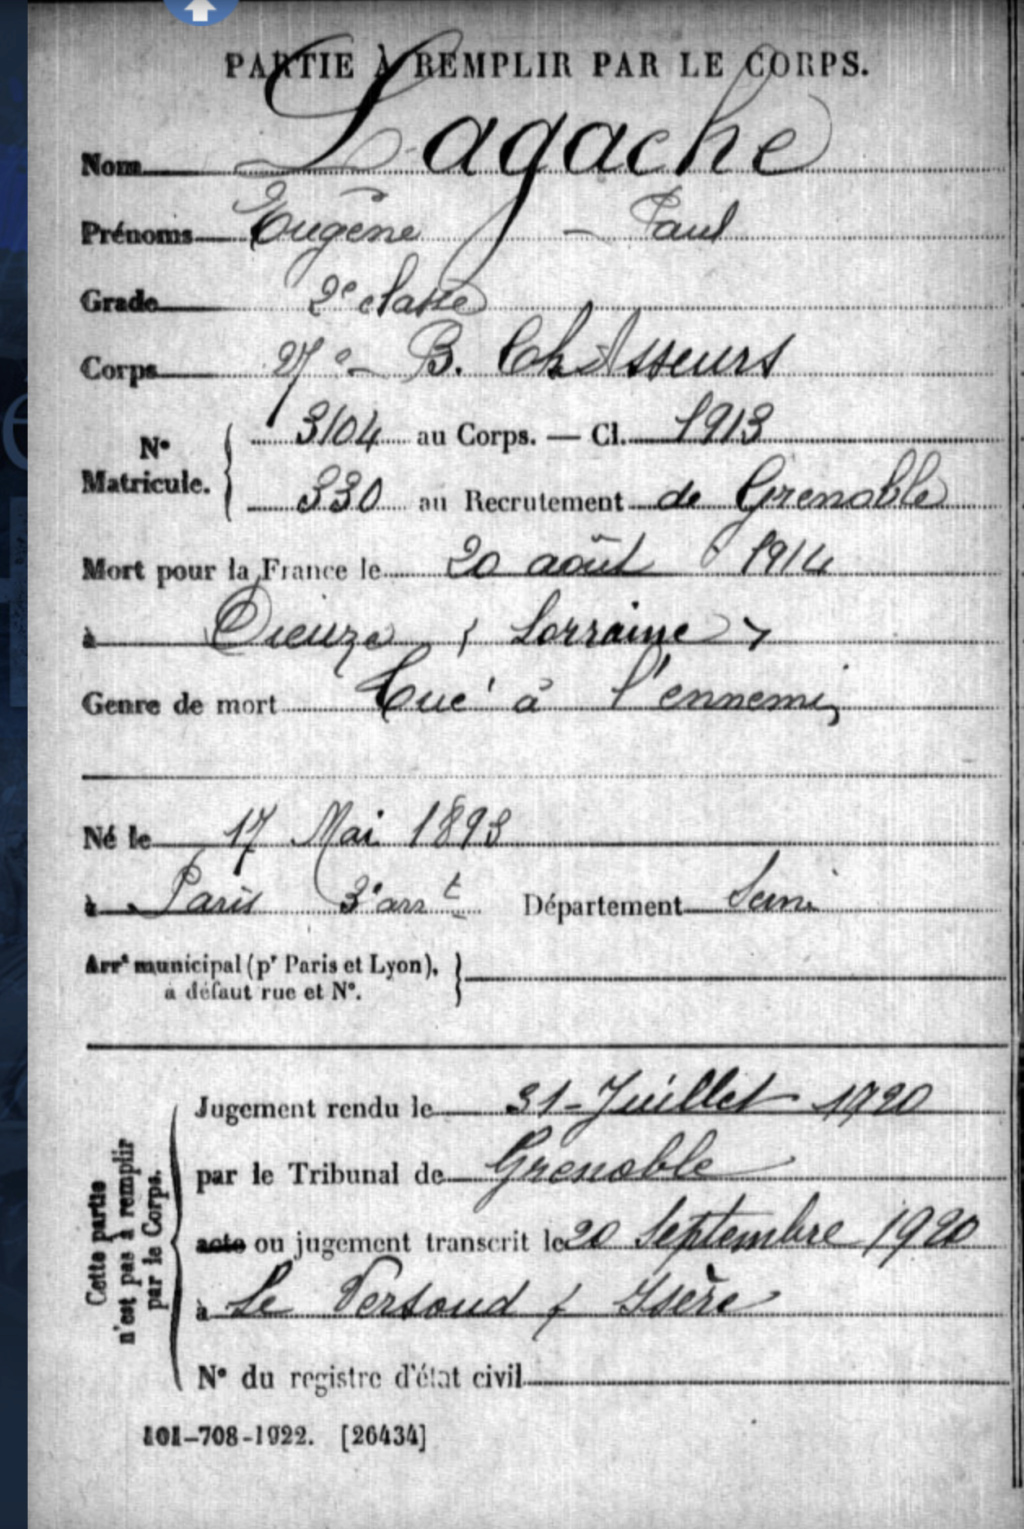 PARTIE À REMPLIR PAR LE CORPS.
Nom Lagache
Prénoms Eugène - Paul
Grade 2e classe
Corps 27e - B. Chasseurs
N° Matricule. { 3104 au Corps. — Cl. 1913
330 au Recrutement de Grenoble
Mort pour la France le 20 août 1914
à Dieuze ( Lorraine )
Genre de mort Tué à l'ennemi
Né le 17 Mai 1893
à Paris 3e arrt Département Seine
Arrt municipal (pr Paris et Lyon), }
à défaut rue et N°.
Cette partie n'est pas à remplir par le Corps.
Jugement rendu le 31 - Juillet 1920
par le Tribunal de Grenoble
acte ou jugement transcrit le 20 Septembre 1920
à Le Versoud ( Isère
N° du registre d'état civil
101-708-1922. [26434]